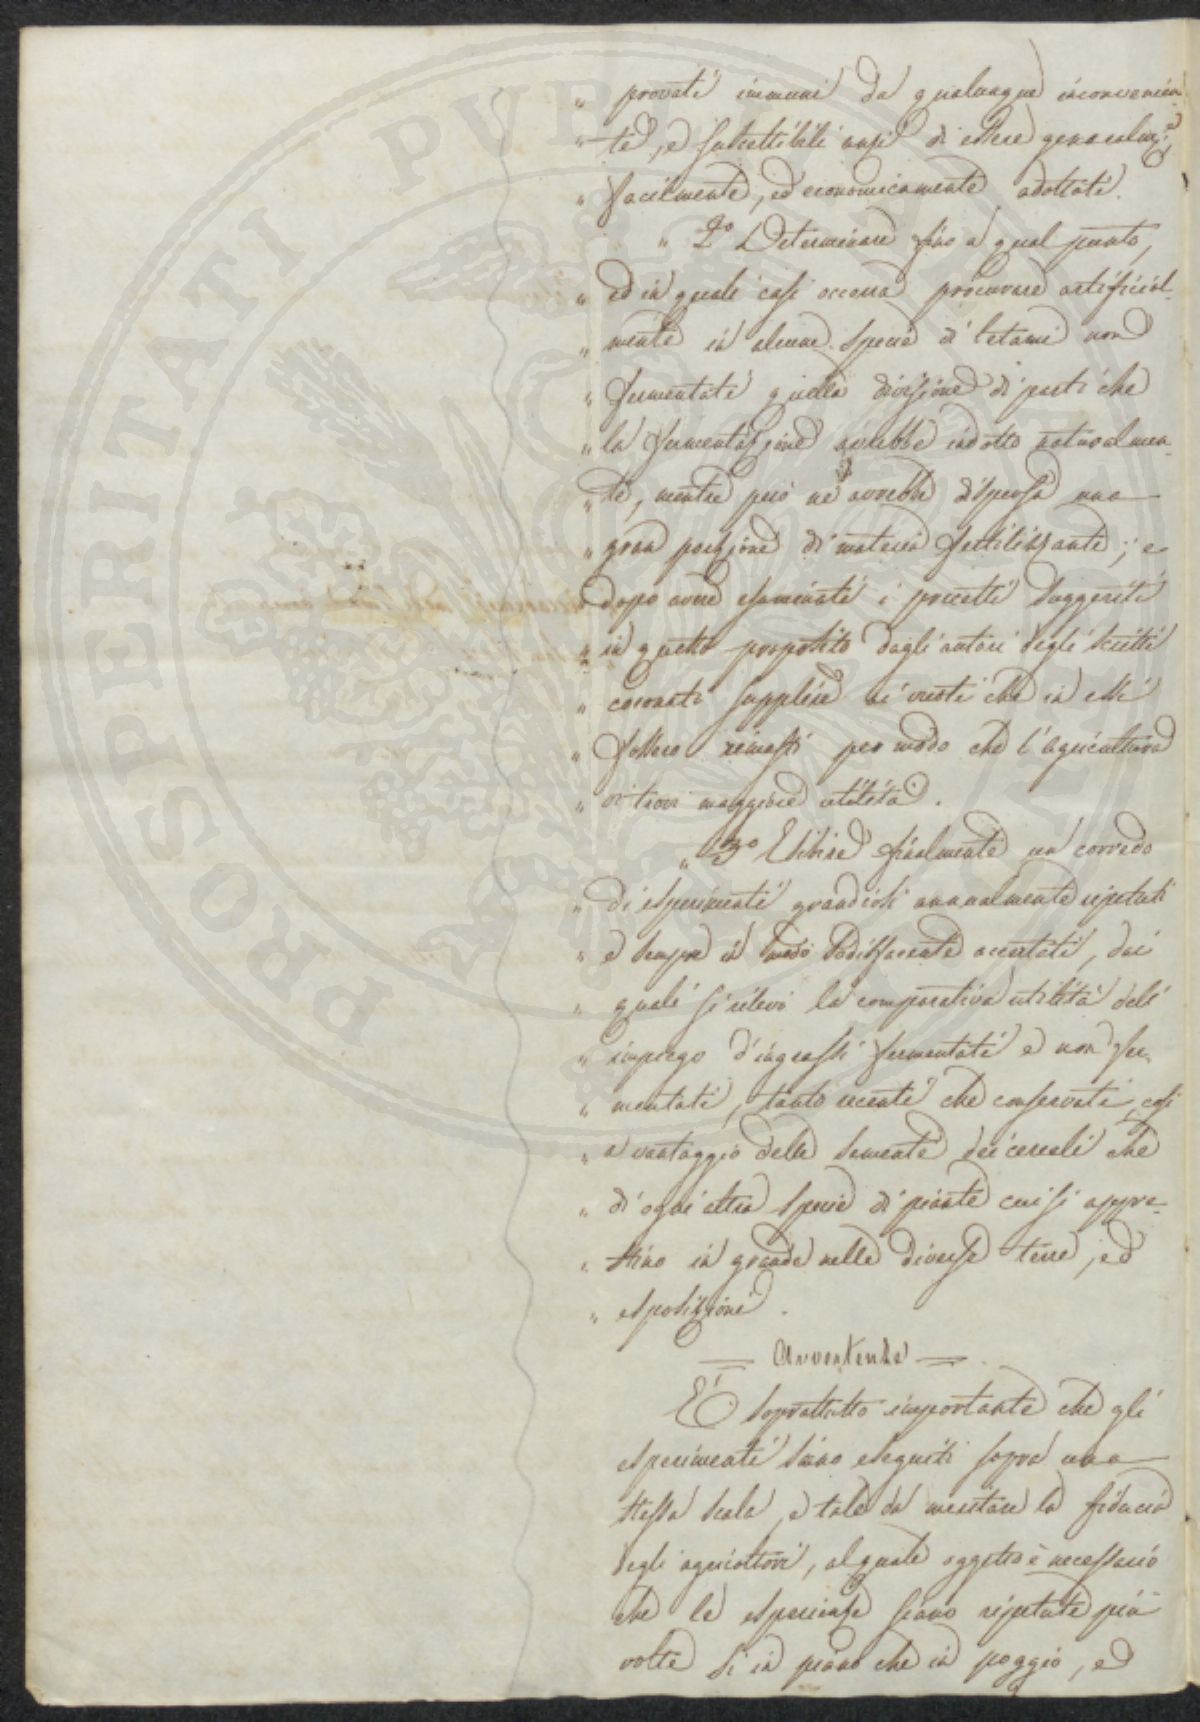 " provati immuni da qualunque inconvenien-
" te, e suscettibili anzi di essere generalm.e
" facilmente, ed economicamente adottati.
" 2.o Determinare fino a qual punto,
" ed in quali casi occorra procurare artificial-
" mente in alcune specie di letami non
" fermentati quella divisione di parti che
" la fermentazione avrebbe indotto naturalmen-
" te, mentre però ne avrebbe dispersa una
" gran porzione di materia fertilizzante; e
" dopo avere esaminati i precetti suggeriti
" in questo proposito dagli autori degli scritti
" coronati supplire ai vuoti che in essi
" fossero rimasti per modo che l'agricoltura
" ritrovi maggiore utilità.
" 3.o Esibire finalmente un corredo
" di esperimenti grandiosi annualmente repetuti
" e sempre in modo sodisfacente accertati, dai
" quali si rilevi la comparativa utilità dell'
" impiego d'ingrassi fermentati e non fer-
" mentati, tanto recenti che conservati, così
" a vantaggio delle semente dei cereali che
" di ogni altra specie di piante cui si appre-
" stino in grande nelle diverse terre, ed
" esposizioni.
= Avvertenze =
È soprattutto importante che gli
esperimenti siano eseguiti sopra una
stessa scala, e tale da meritare la fiducia
degli agricoltori, al quale oggetto è necessario
che le esperienze siano ripetute più
volte sì in piano che in poggio, ed
PROSPERITATI PUBLICAE